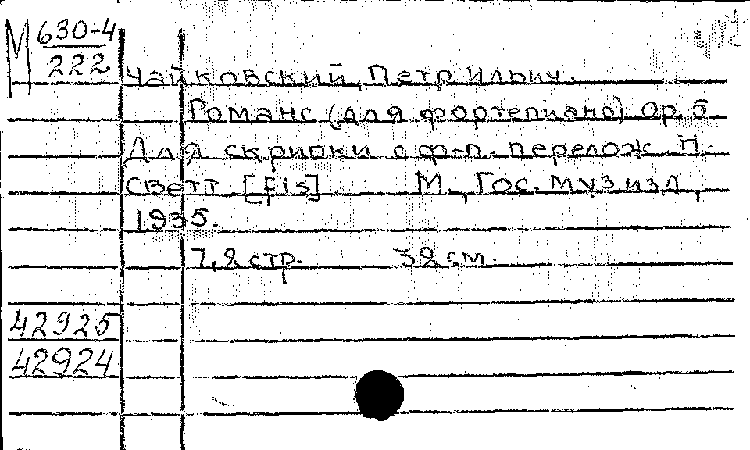 М 630-4
222
Чайковский, Петр Ильич.
Романс (для фортепиано) Op. 5
Для скрипки с ф-п. перелож. П.
Светт. [Fis] М., Гос. муз изд,
1935.
7, 2 стр. 32 см.
42925
42924